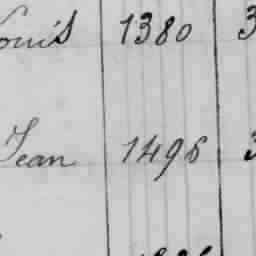 Louis 1380 3
Jean 1496 3